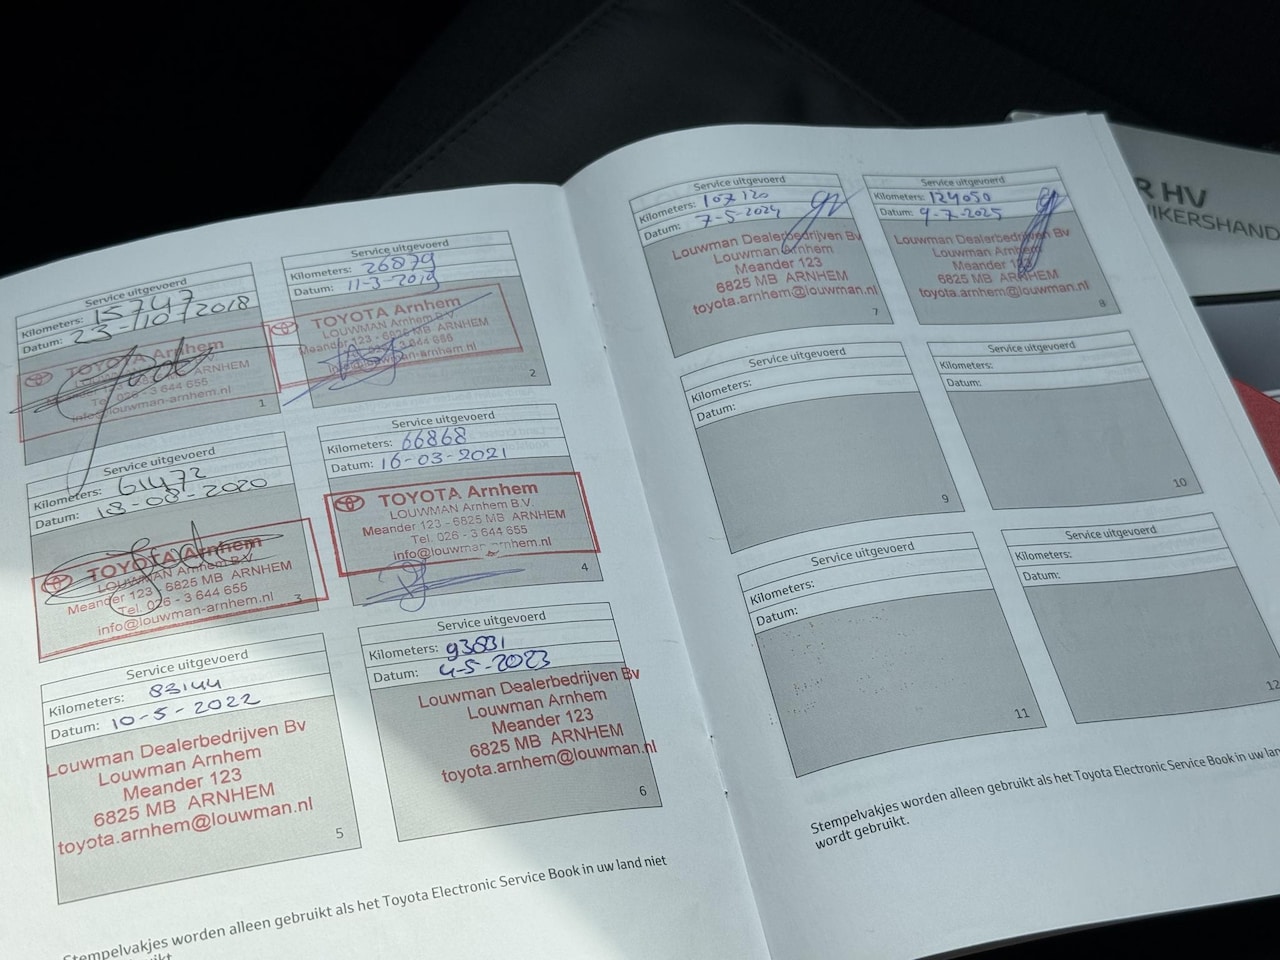 Service uitgevoerd
Kilometers: 15747
Datum: 23-10-2018
TOYOTA Arnhem
LOUWMAN
Meander 123
Tel. 026 - 3 644 655
info@louwman-arnhem.nl
1
Service uitgevoerd
Kilometers: 26879
Datum: 11-3-2019
TOYOTA Arnhem
LOUWMAN Arnhem B.V.
Meander 123 - 6825 MB ARNHEM
3 644 655
info@louwman-arnhem.nl
2
Service uitgevoerd
Kilometers: 61472
Datum: 18-08-2020
TOYOTA Arnhem
LOUWMAN Arnhem B.V.
Meander 123 - 6825 MB ARNHEM
Tel. 026 - 3 644 655
info@louwman-arnhem.nl
3
Service uitgevoerd
Kilometers: 66868
Datum: 16-03-2021
TOYOTA Arnhem
LOUWMAN Arnhem B.V.
Meander 123 - 6825 MB ARNHEM
Tel. 026 - 3 644 655
info@louwman-arnhem.nl
4
Service uitgevoerd
Kilometers: 83144
Datum: 10-5-2022
Louwman Dealerbedrijven Bv
Louwman Arnhem
Meander 123
6825 MB ARNHEM
toyota.arnhem@louwman.nl
5
Service uitgevoerd
Kilometers:
Datum: 4-5-2023
Louwman Dealerbedrijven Bv
Louwman Arnhem
Meander 123
6825 MB ARNHEM
toyota.arnhem@louwman.nl
6
Stempelvakjes worden alleen gebruikt als het Toyota Electronic Service Book in uw land niet
Service uitgevoerd
Kilometers: 107120
Datum: 7-5-2024
Louwman Dealerbedrijven Bv
Louwman Arnhem
Meander 123
6825 MB ARNHEM
toyota.arnhem@louwman.nl
7
Service uitgevoerd
Kilometers: 124050
Datum: 9-7-2025
Louwman Dealerbedrijven Bv
Louwman Arnhem
Meander 123
6825 MB ARNHEM
toyota.arnhem@louwman.nl
8
Service uitgevoerd
Kilometers:
Datum:
9
Service uitgevoerd
Kilometers:
Datum:
10
Service uitgevoerd
Kilometers:
Datum:
11
Service uitgevoerd
Kilometers:
Datum:
12
Stempelvakjes worden alleen gebruikt als het Toyota Electronic Service Book in uw
wordt gebruikt.
R HV
IKERSHAND